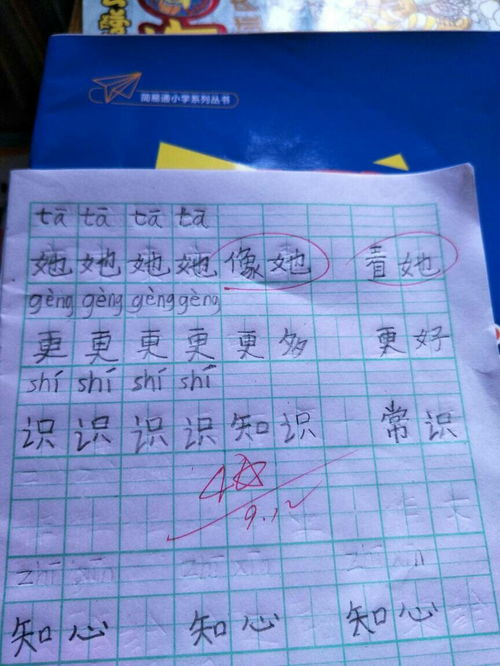 简易通小学系列丛书
tā tā tā tā
她她她她像她 看她
gèng gèng gèng gèng
更更更更更多 更好
shí shí shí shí
识识识识知识 常识
9.12
zhī xīn zhī xīn zhī xīn
知心 知心 知心